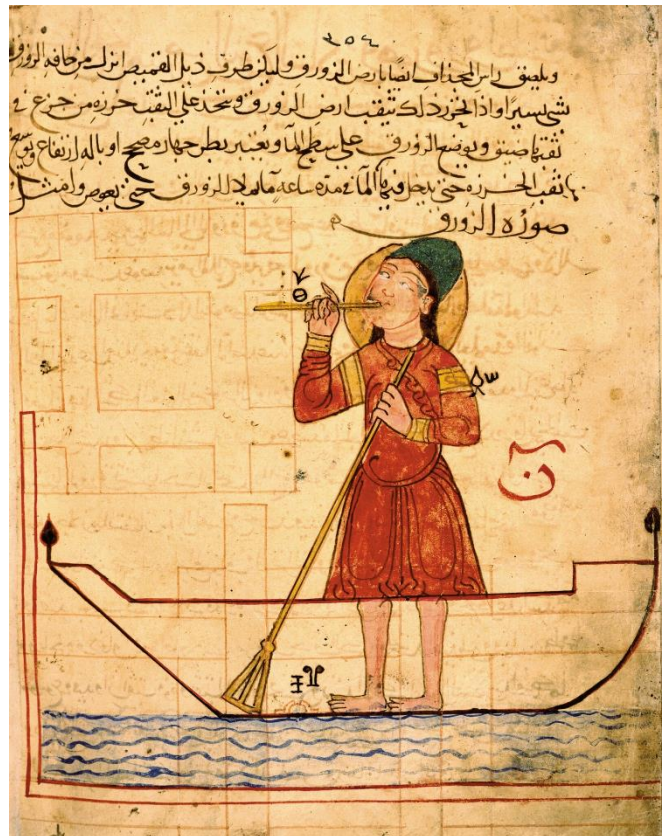 ٣٥٤
ويلصق راس المجذاف ايضا بارض الزورق وليكن طرف ذيل القميص انزل من حافه الزورق
شي يسيرا واذا تحرر ذلك تثقب ارض الزورق ويتخذ على الثقب خرزه من جزع في
ثقبها ضيق ويوضع الزورق على سطح الما ويعتبر بطرجهار مصحح او باله ارتفاع ويوسع
ثقب الخرزه حتى يدخل فيها من الما في مده ساعه ما يملا الزورق حتى يغوص وامثل
صوره الزورق
ن